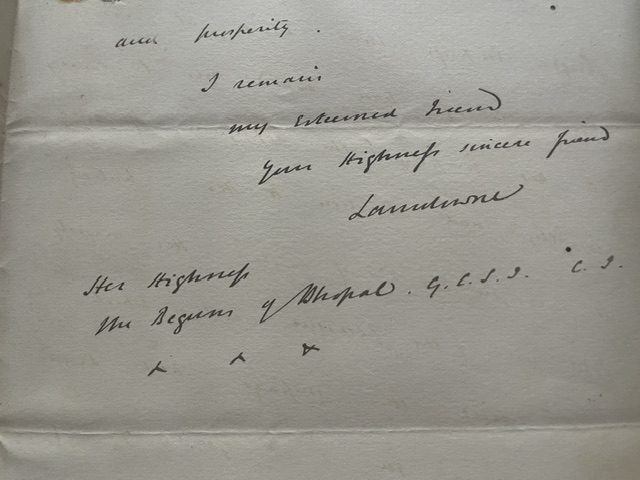 and prosperity.
I remain
my Esteemed Friend
Your Highness sincere friend
Lansdowne
Her Highness
The Begum of Bhopal. G.C.S.I. C.I.
x x x